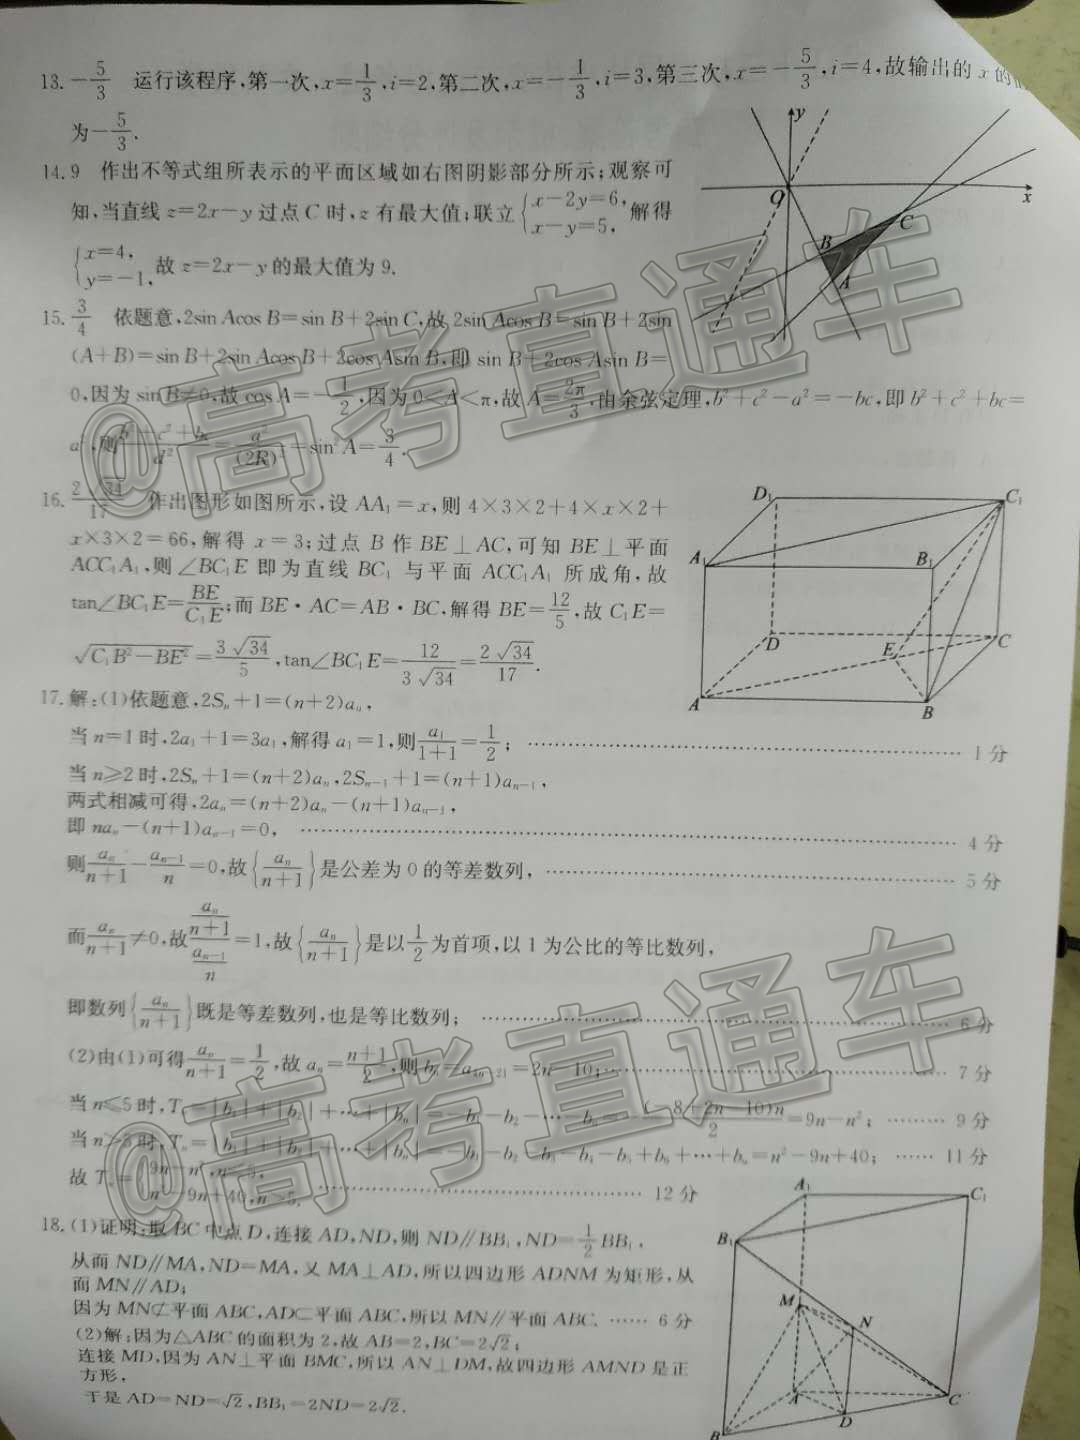 13. −5/3 运行该程序,第一次,x=1/3,i=2,第二次,x=−1/3,i=3,第三次,x=−5/3,i=4,故输出的 x 的
为−5/3.
14. 9 作出不等式组所表示的平面区域如右图阴影部分所示;观察可
知,当直线 z=2x−y 过点 C 时,z 有最大值;联立{x−2y=6, x−y=5, 解得
{x=4, y=−1, 故 z=2x−y 的最大值为 9.
y
O
x
B
C
A
15. 3/4 依题意,2sin Acos B=sin B+2sin C,故 2sin Acos B=sin B+2sin
(A+B)=sin B+2sin Acos B+2cos Asin B,即 sin B+2cos Asin B=
0,因为 sin B≠0,故 cos A=−1/2,因为 0<A<π,故 A=2π/3,由余弦定理,b²+c²−a²=−bc,即 b²+c²+bc=
a²,则 =a²/(2R)²=sin²A=3/4.
16. 2√34/17 作出图形如图所示,设 AA₁=x,则 4×3×2+4×x×2+
x×3×2=66,解得 x=3;过点 B 作 BE⊥AC,可知 BE⊥平面
ACC₁A₁,则∠BC₁E 即为直线 BC₁ 与平面 ACC₁A₁ 所成角,故
tan∠BC₁E=BE/C₁E;而 BE·AC=AB·BC,解得 BE=12/5,故 C₁E=
√(C₁B²−BE²)=3√34/5,tan∠BC₁E=12/(3√34)=2√34/17.
D₁
C₁
A₁
B₁
D
E
C
A
B
17. 解:(1)依题意,2Sₙ+1=(n+2)aₙ,
当 n=1 时,2a₁+1=3a₁,解得 a₁=1,则 a₁/(1+1)=1/2; …… 1 分
当 n≥2 时,2Sₙ+1=(n+2)aₙ,2Sₙ₋₁+1=(n+1)aₙ₋₁,
两式相减可得,2aₙ=(n+2)aₙ−(n+1)aₙ₋₁,
即 naₙ−(n+1)aₙ₋₁=0, …… 4 分
则 aₙ/(n+1)−aₙ₋₁/n=0,故{aₙ/(n+1)}是公差为 0 的等差数列, …… 5 分
而 aₙ/(n+1)≠0,故 (aₙ/(n+1))/(aₙ₋₁/n)=1,故{aₙ/(n+1)}是以 1/2 为首项,以 1 为公比的等比数列,
即数列{aₙ/(n+1)}既是等差数列,也是等比数列; …… 6 分
(2)由(1)可得 aₙ/(n+1)=1/2,故 aₙ=(n+1)/2,则 bₙ=a₄ₙ₋₂₁=2n−10; …… 7 分
当 n≤5 时,Tₙ=|b₁|+|b₂|+…+|bₙ|=−b₁−b₂−…−bₙ=−(−8+2n−10)n/2=9n−n²; …… 9 分
当 n>5 时,Tₙ=|b₁|+|b₂|+…+|bₙ|=−b₁−b₂−b₃−b₄−b₅+b₆+…+bₙ=n²−9n+40; …… 11 分
故 Tₙ={9n−n²,n≤5, n²−9n+40,n>5. …… 12 分
18. (1)证明:取 BC 中点 D,连接 AD,ND,则 ND∥BB₁,ND=1/2 BB₁,
从而 ND∥MA,ND=MA,又 MA⊥AD,所以四边形 ADNM 为矩形,从
而 MN∥AD;
因为 MN⊄平面 ABC,AD⊂平面 ABC,所以 MN∥平面 ABC. …… 6 分
(2)解:因为△ABC 的面积为 2,故 AB=2,BC=2√2;
连接 MD,因为 AN⊥平面 BMC,所以 AN⊥DM,故四边形 AMND 是正
方形,
于是 AD=ND=√2,BB₁=2ND=2√2.
A₁
C₁
B₁
M
N
A
C
D
B
@高考直通车
@高考直通车